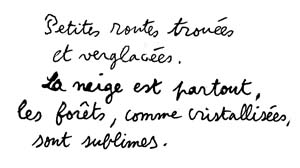 Petites routes trouées
et verglacées.
La neige est partout,
les forêts, comme cristallisées,
sont sublimes.